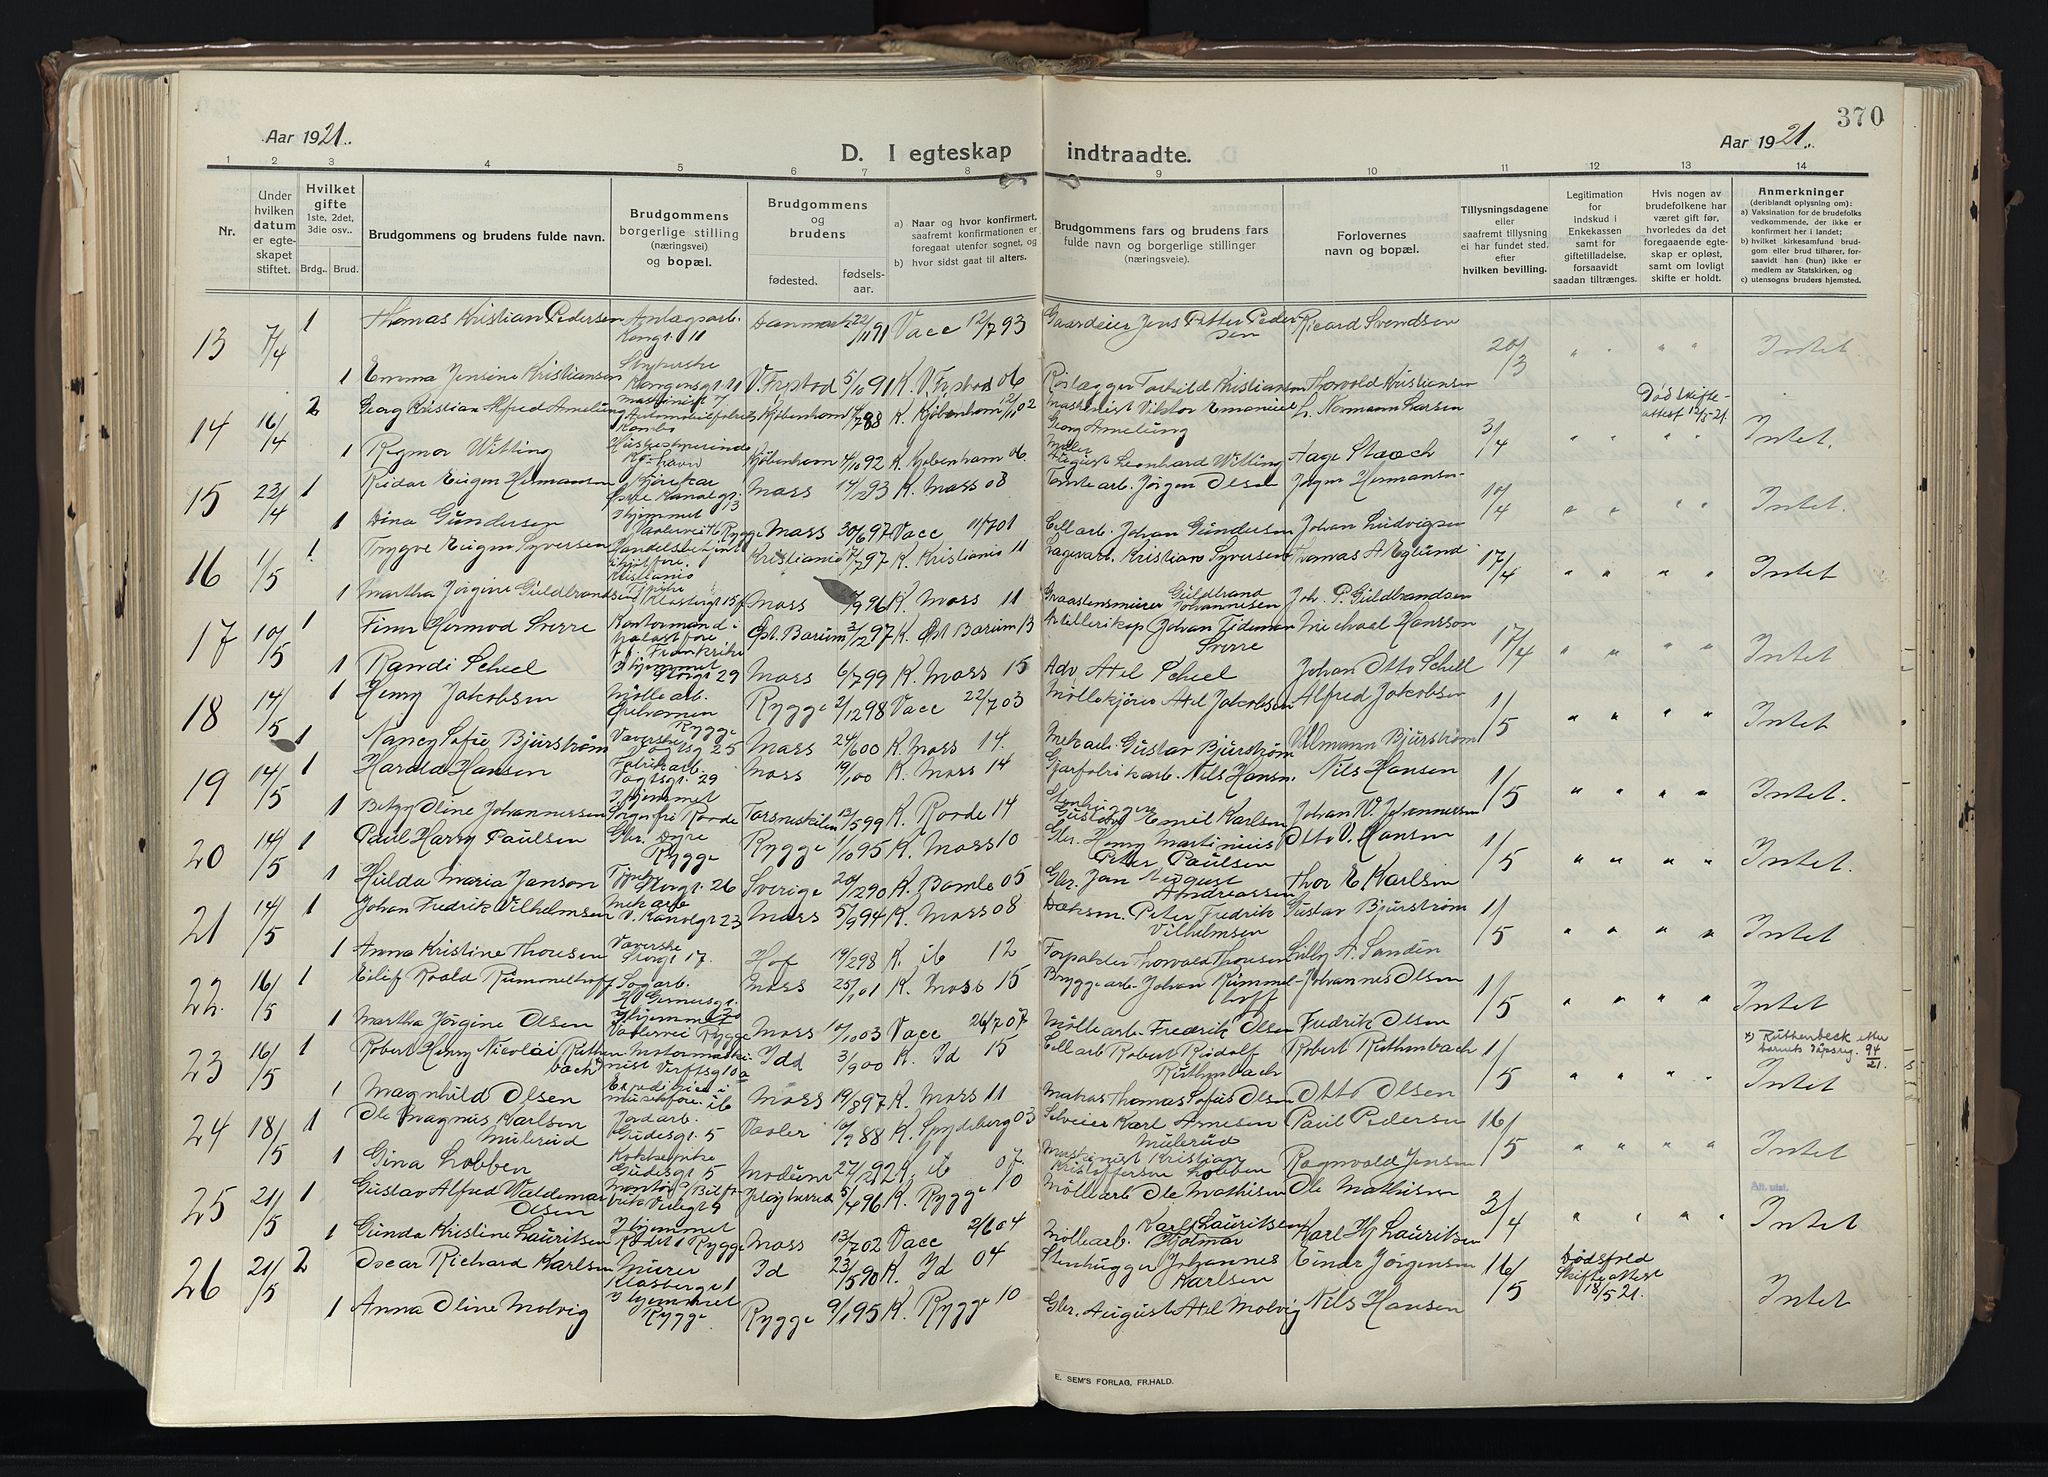 370
Aar 1921.
D. I egteskap indtraadte.
Aar 1921.
1 2 3 4 5 6 7 8 9 10 11 12 13 14
Nr.
Under hvilken datum er egteskapet stiftet.
Hvilket gifte 1ste, 2det, 3die osv..
Brdg. Brud.
Brudgommens og brudens fulde navn.
Brudgommens borgerlige stilling (næringsvei) og bopæl.
Brudgommens og brudens
fødested. fødselsaar.
a) Naar og hvor konfirmert, saafremt konfirmationen er foregaat utenfor sognet, og
b) hvor sidst gaat til alters.
Brudgommens fars og brudens fars fulde navn og borgerlige stillinger (næringsveie).
Forlovernes navn og bopæl.
Tillysningsdagene eller saafremt tillysning ei har fundet sted. efter hvilken bevilling.
Legitimation for indskud i Enkekassen samt for giftetilladelse, forsaavidt saadan tiltrænges.
Hvis nogen av brudefolkene har været gift før, hvorledes da det foregaaende egteskap er opløst, samt om lovligt skifte er holdt.
Anmerkninger (deriblandt oplysning om):
a) Vaksination for de brudefolks vedkommende, der ikke er konfirmert her i landet;
b) hvilket kirkesamfund brudgom eller brud tilhører, forsaavidt han (hun) ikke er medlem av Statskirken, og
c) utensogns bruders hjemsted.
13 7/4 1 Thomas Kristian Pedersen Anlægsarb. Kongsg. 11 Danmark 22/11 91 Vacc 12/7 93 Gaardeier Jens Petter Pedersen Ricard Svendsen 20/3 " " " " Intet.
1 Emma Jensine Kristiansen Kongensgt. 11 V. Frystad 5/10 91 K. V. Frystad 06 Torkild Kristiansen Thorvald Kristiansen
14 16/4 2 Georg Kristian Alfred Amelung Maskinist Automobilfabrik Kambo Kjøbenhavn 88 K. Kjøbenhavn 02 Maskinist Viktor Emanuel Georg Amelung L. Normann Larsen 3/4 " " " Død skifteattest 12/5-21. Intet.
1 Regmor Witting Husbestyrerinde Kj.havn Kjøbenhavn 4/10 92 K. Kjøbenhavn 06. Maler August Leonhard Witting Aage Staach
15 23/4 1 Reidar Eugen Hermansen Østre Kanalgt. 13 Moss 14/12 93 K. Moss 08 Tomtearb. Jørgen Olsen Jørgen Hermansen 10/4 " " " " Intet.
1 Dina Gundersen I hjemmet Vaalervei 16 Rygge Moss 30/6 97 Vacc 11/7 01 Cell.arb. Johan Gundersen Johan Ludvigsen
16 1/5 1 Trygve Eugen Syversen Kristiania Kristiania 97 K. Kristiania 11 Lagerarb. Kristian Syversen Thomas A. Eglund 17/4 " " " " Intet
1 Martha Jørgine Guldbrandsen Klostergt 15 Moss 96 K. Moss 11 Graastensmurer Guldbrand Johannesen Joh. P. Guldbrandsen
17 10/5 1 Finn Hermod Sverre Kontormand i Frankrike Øst. Bærum 3/12 97 K. Øst Bærum 13 Artillerikap Johan Tideman Sverre Michael Hansson 17/4 " " " " Intet
1 Randi Scheel I hjemmet Storgt 29 Moss 6/7 99 K. Moss 15 Adv. Axel Scheel Johan Otto Schell
18 14/5 1 Henry Jakobsen Møllearb. Rygge Rygge 2/12 98 Vacc 22/7 03 Møllekjører Axel Jakobsen Alfred Jakobsen 1/5 " " " " Intet
1 Nancy Sofie Bjurstrøm Væverske Vogtsg 25 Moss 24/6 00 K. Moss 14. Mek.arb. Gustav Bjurstrøm Vilmann Bjurstrøm
19 14/5 1 Harald Hansen Fabrikarb. Vogtsgt. 29 Moss 19/1 00 K. Moss 14 Gjærfabrikarb. Nils Hansen Nils Hansen 1/5 " " " " Intet.
1 Betzy Oline Johannessen I hjemmet Sorgenfri Raade Torsneskilen 13/5 99 K. Raade 14 Stenhugger Gustav Emil Karlsen Johan W. Johannessen
20 14/5 1 Paul Harry Paulsen Gbr. Dyre Rygge Rygge 1/10 95 K. Moss 10 Gbr. Henry Martinius Peter Paulsen Otto V. Hansen 1/5 " " " " Intet
1 Hulda Maria Janson Storgt. 26 Sverige 20/12 90 K. Bamle 05 Gbr. Jan August Andreassen Thor E Karlsen
21 14/5 1 Johan Fredrik Vilhelmsen Mek.arb V. Kanalgt 23 Moss 5/9 94 K. Moss 08 Dæksm. Peter Fredrik Vilhelmsen Gustav Bjurstrøm 1/5 " " " " Intet
1 Anna Kristine Thoresen Væverske Storgt 17. Hof 19/2 98 K. ib 12 Forpakter Thorvald Thoresen Lilly A. Sanden
22. 16/5 1 Eilif Roald Rummelhoff Sagarb. Moss 25/1 01 K. Moss 15 Bryggearb. Johan Rummelhoff Johannes Olsen 1/5 " " " " Intet
1 Martha Jørgine Olsen I hjemmet Vaalervei Rygge Moss 10/10 03 Vacc 26/7 07 Møllearb. Fredrik Olsen Fredrik Olsen
23 16/5 1 Robert Henry Nicolai Ruthenbach x) Motormaskinist Værftsg 10a Idd 3/9 00 K. Id 15 Cellarb Robert Rudolf Ruthenbach Robert Ruthenbach 1/5 " " " " x) Ruthenbeck efter barnets dåpsreg. 94/21. Intet
1 Magnhild Olsen musikforr. ib Moss 19/8 97 K. Moss 11 Matros Thomas Sofus Olsen Otto Olsen
24 18/5 1 Ole Magnus Karlsen Mulerud Jordarb. Gudesgt. 5 Vaaler 10/9 88 K. Spydeberg 03 Selveier Karl Arnesen Mulerud Paul Pedersen 16/5 " " " " Intet
1 Gina Lobben Kokkepike Gudesgt 5 Modum 27/12 92 K. ib 07. Maskinist Kristian Kristoffersen Lobben Ragnvald Jensen
25 21/5 1 Gustav Alfred Valdemar Olsen 5/4 96 K. Rygge 10 Møllearb Ole Mathisen Ole Mathisen 3/4 " " " Aft. utst. Intet
1 Gunda Kristine Lauritsen I hjemmet Rygge Moss 13/7 02 Vacc 2/6 04 Møllearb. Karl Lauritsen Hjalmar Karl Hj Lauritsen
26 21/5 2 Oscar Richard Karlsen Murer Klosterge 1 Id 23/5 90 K. Id 04 Stenhugger Johannes Karlsen Einar Jørgensen 16/5 Dødsfred Skifteattest 18/5 21. Intet
1 Anna Oline Molvig I hjemmet Rygge Rygge 9/1 95 K. Rygge 10 Gbr. August Axel Molvig Nils Hansen
E. SEM'S FORLAG, FR.HALD.